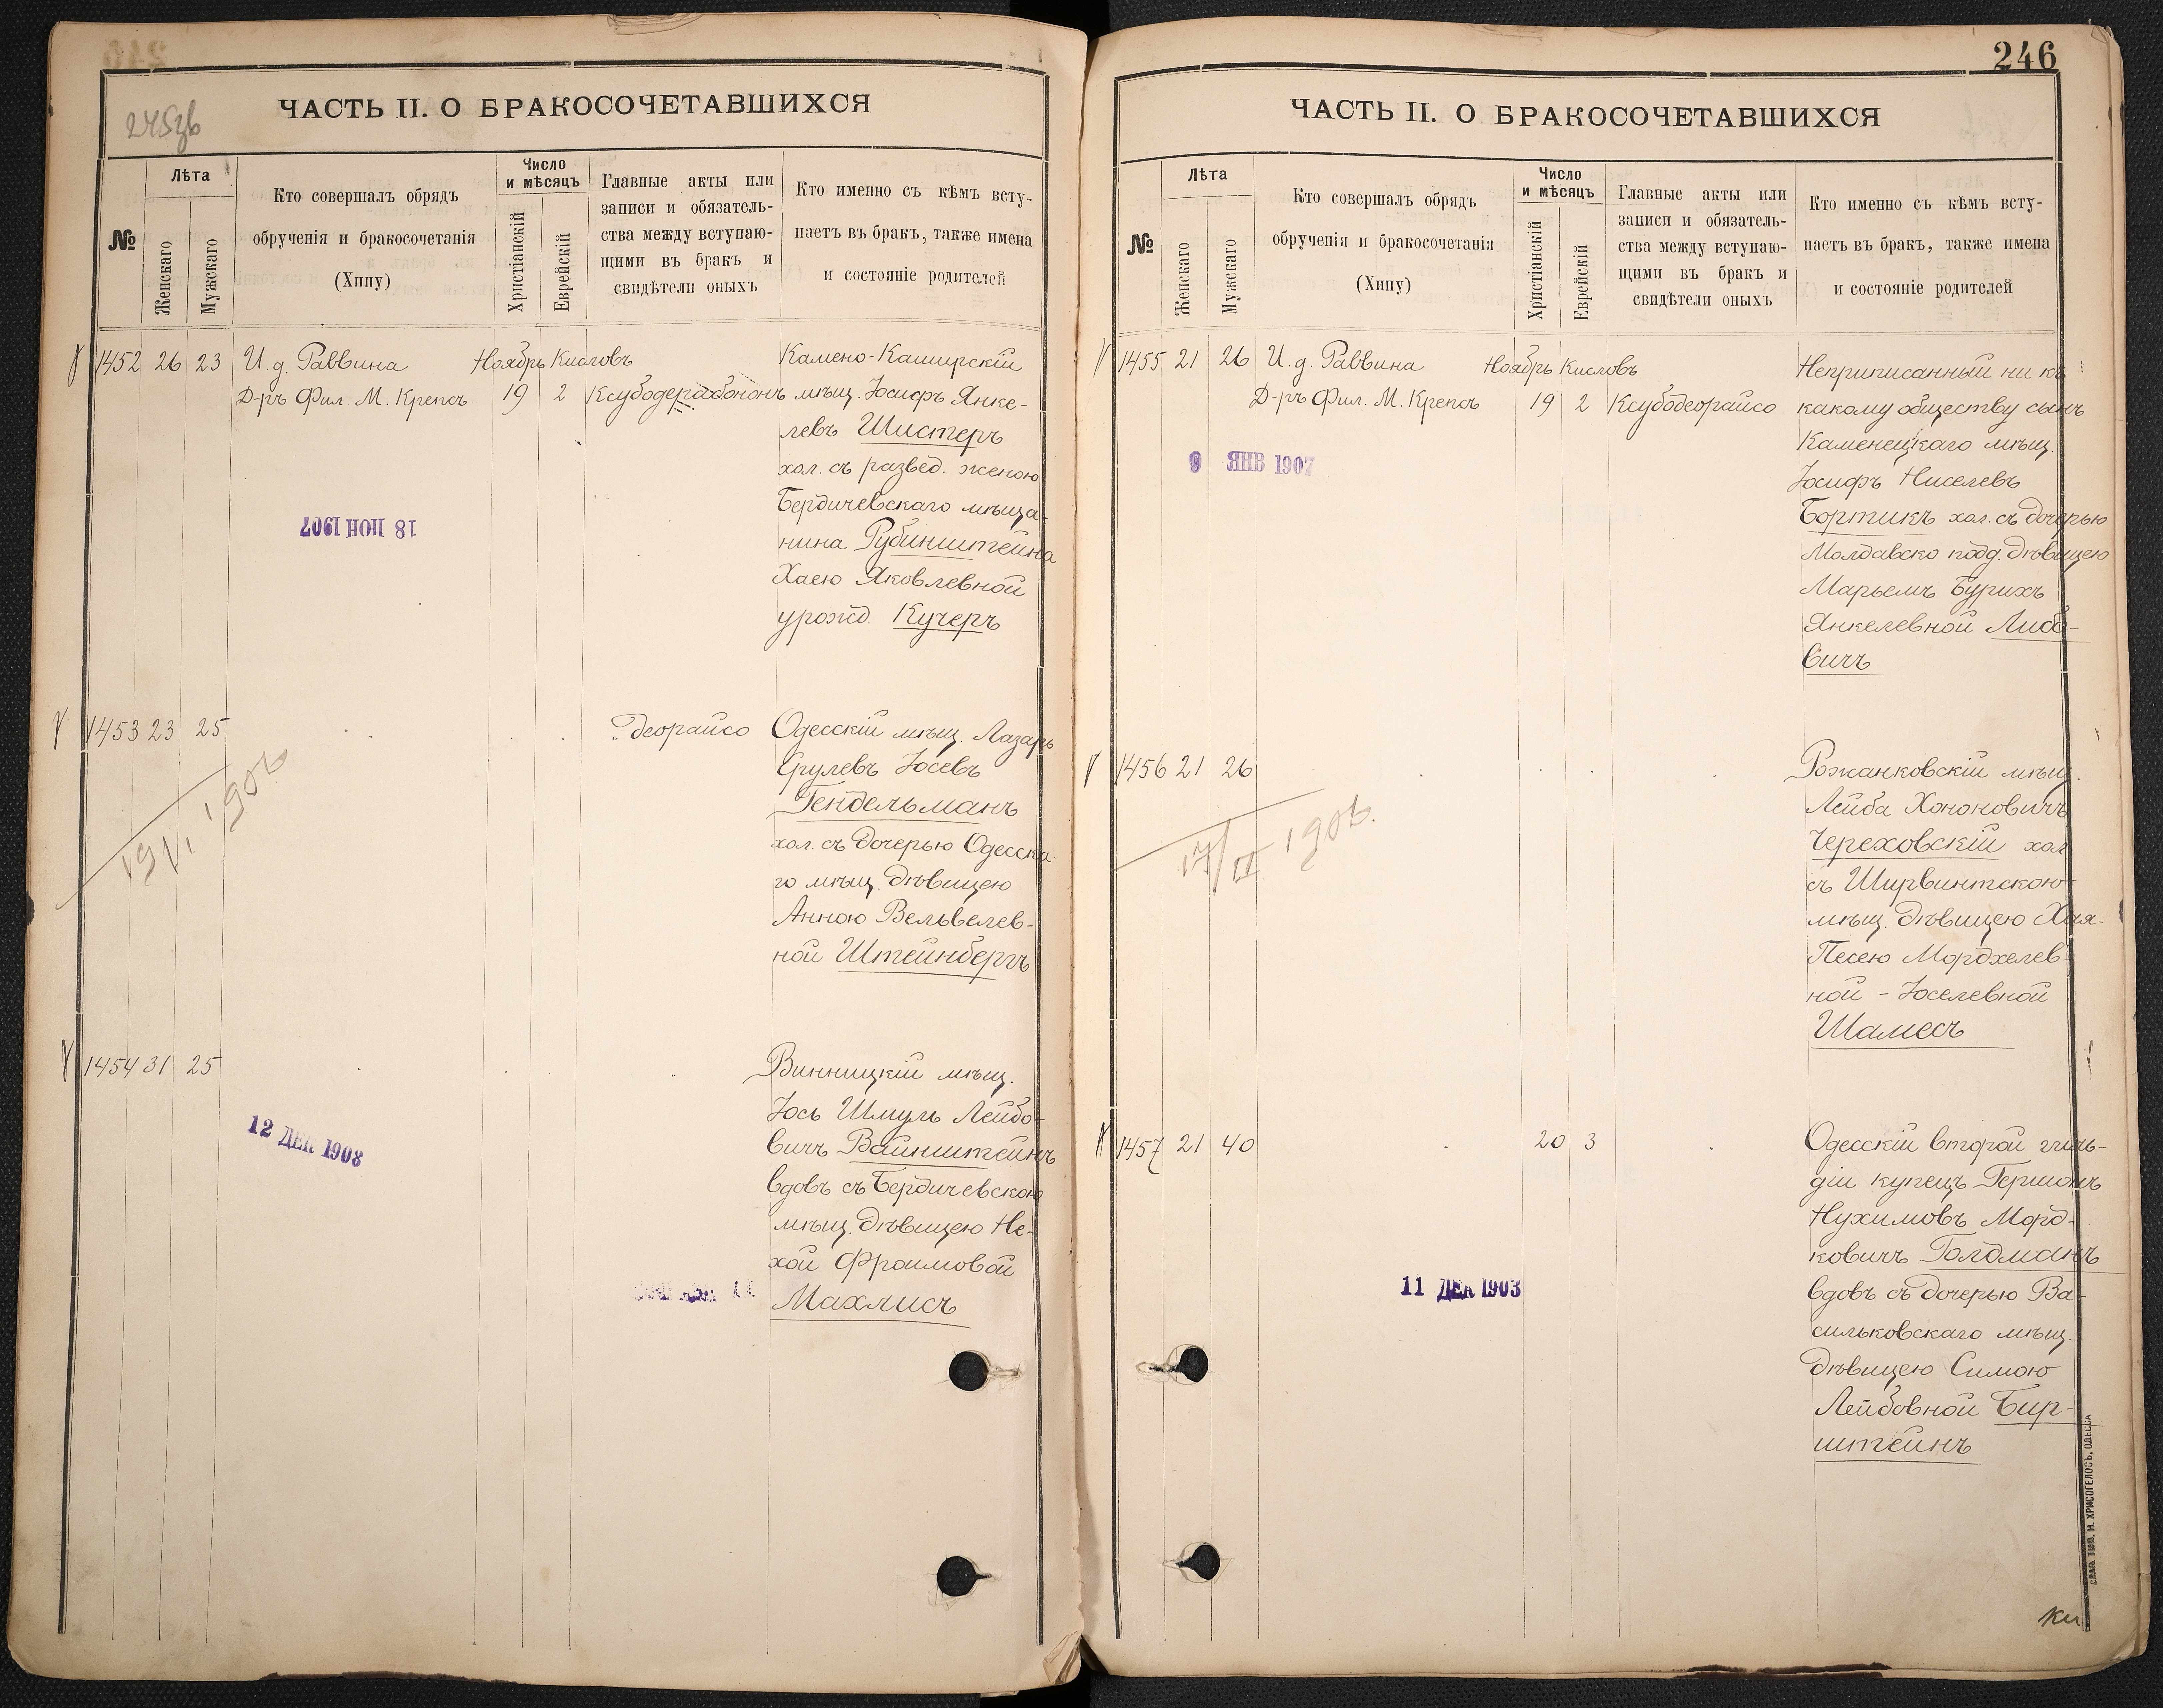 246
245зв
ЧАСТЬ II. О БРАКОСОЧЕТАВШИХСЯ
№
Лѣта
Женскаго
Мужскаго
Кто совершалъ обрядъ
обрученія и бракосочетанія
(Хипу)
Число
и мѣсяцъ
Христіанскій
Еврейскій
Главные акты или
записи и обязатель-
ства между вступаю-
щими въ бракъ и
свидѣтели оныхъ
Кто именно съ кѣмъ всту-
паетъ въ бракъ, также имена
и состояніе родителей
1452 26 23 И. д. Раввина Ноябрь Кисловъ Камено-Каширскій
Д-ръ Фил. М. Крепсъ 19 2 мѣщ. Іосифъ Янке-
левъ Шистеръ
хол. съ развед. женою
Бердичевскаго мѣща-
18 ІЮН 1907
нина Рубинштейна
Хаею Яковлевной
урожд. Кучеръ
1453 23 25 " деорайсо Одесскій мѣщ. Лазарь
Срулевъ Іосевъ
Гендельманъ
19/I 1906
хол. съ дочерью Одесска-
го мѣщ. дѣвицею
Анною Вельвелев-
ной Штейнбергъ
1454 31 25 Винницкій мѣщ.
Іось Шмуль Лейбо-
12 ДЕК 1908
вичъ Вайнштейнъ
вдовъ съ Бердичевскою
мѣщ. дѣвицею Не-
хой Фроимовой
Махлисъ
ЧАСТЬ II. О БРАКОСОЧЕТАВШИХСЯ
№
Лѣта
Женскаго
Мужскаго
Кто совершалъ обрядъ
обрученія и бракосочетанія
(Хипу)
Число
и мѣсяцъ
Христіанскій
Еврейскій
Главные акты или
записи и обязатель-
ства между вступаю-
щими въ бракъ и
свидѣтели оныхъ
Кто именно съ кѣмъ всту-
паетъ въ бракъ, также имена
и состояніе родителей
1455 21 26 И. д. Раввина Ноябрь Кисловъ Неприписанный ни къ
Д-ръ Фил. М. Крепсъ 19 2 Ксубодеорайсо какому обществу сынъ
Каменецкаго мѣщ.
9 ЯНВ 1907
Іосифъ Ниселевъ
Бортикъ хол. съ дочерью
Молдавско подд. дѣвицею
Марьемъ Бурихъ
Янкелевной Либо-
вичъ
1456 21 26 Рожанковскій мѣщ.
Лейба Хононовичъ
Череховскій хол
17/II 1906.
съ Ширвинтскою
мѣщ. дѣвицею Хая-
Песею Мордхелев-
ной - Іоселевной
Шамесъ
1457 21 40 20 3 Одесскій второй гиль-
діи купецъ Гершонъ
Нухимовъ Морд-
ковичъ Голдманъ
11 ДЕК 1903
вдовъ съ дочерью Ва-
сильковскаго мѣщ.
дѣвицею Симою
Лейбовной Бир-
штейнъ
СЛАВ. ТИП. Н. ХРИСОГЕЛОСЪ. ОДЕССА